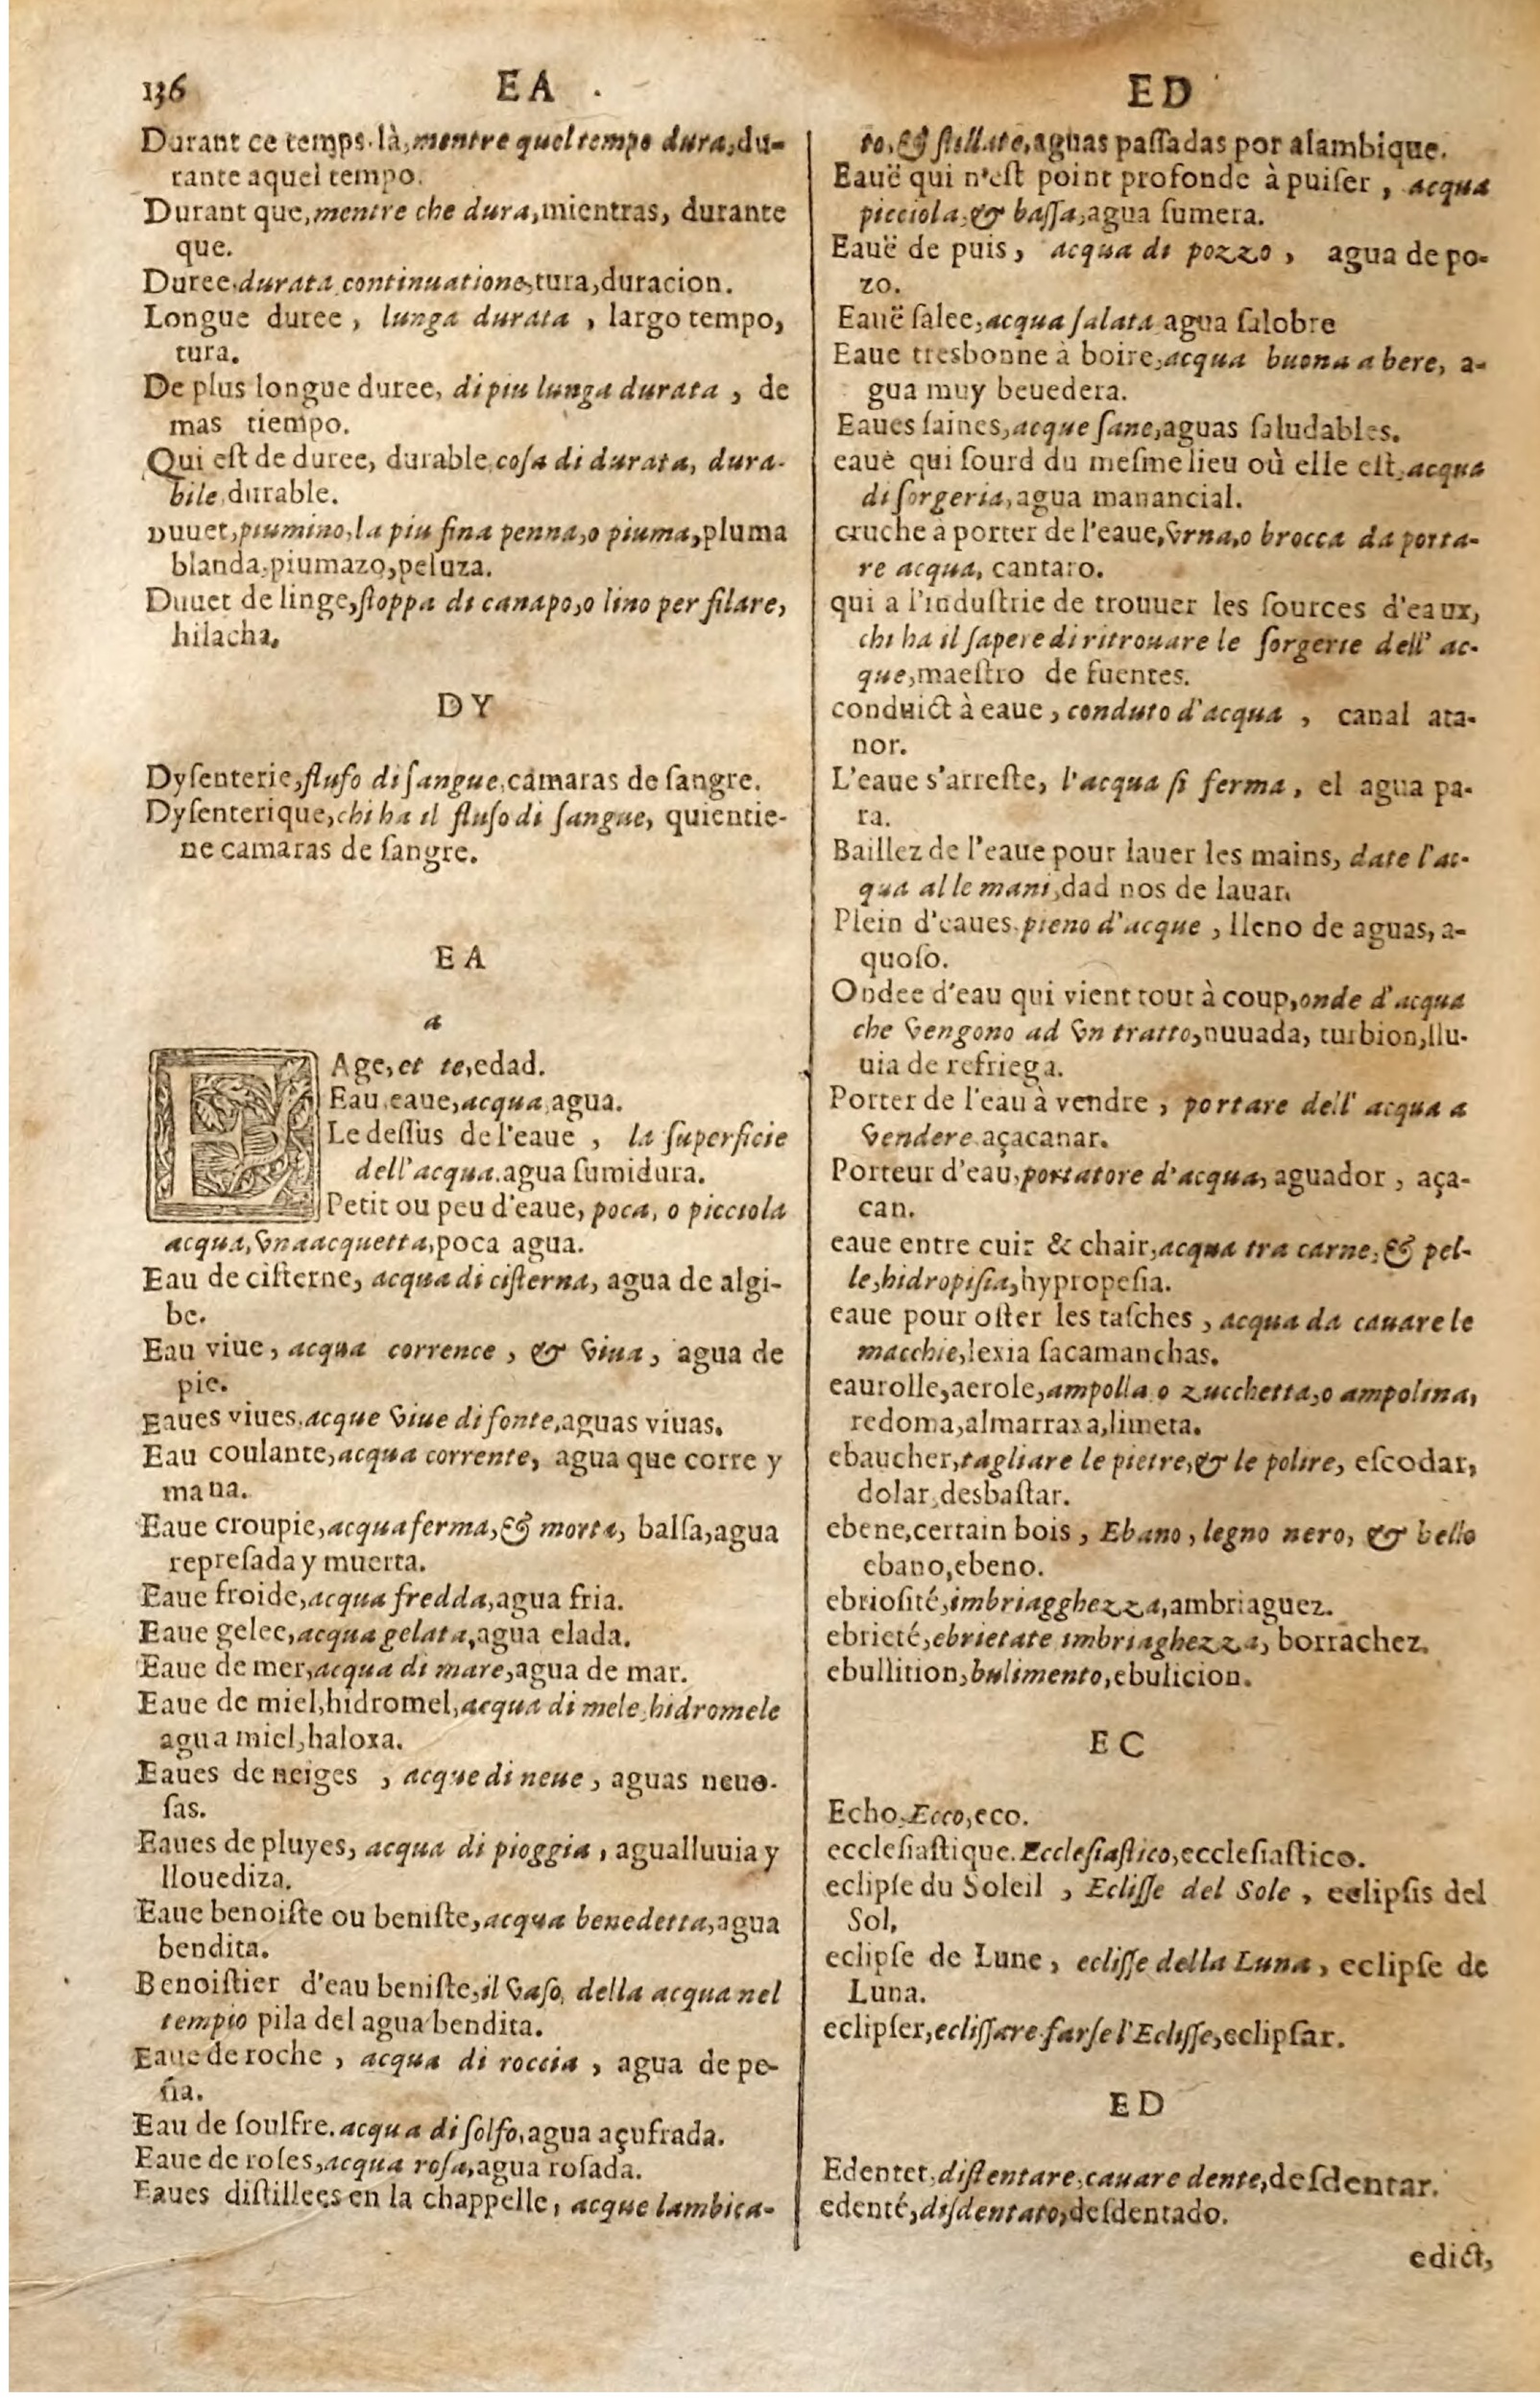 136
EA
ED
Durant ce temps-là, mentre quel tempo dura, du-
rante aquel tempo.
Durant que, mentre che dura, mientras, durante
que.
Duree, durata continuatione, tura, duracion.
Longue duree, lunga durata, largo tempo,
tura.
De plus longue duree, di piu lunga durata, de
mas tiempo.
Qui eſt de duree, durable, coſa di durata, dura-
bile, durable.
Duuet, piumino, la piu fina penna, o piuma, pluma
blanda, piumazo, peluza.
Duuet de linge, ſtoppa di canapo, o lino per filare,
hilacha.
DY
Dyſenterie, fluſo di ſangue, camaras de ſangre.
Dyſenterique, chi ha il fluſo di ſangue, quien tie-
ne camaras de ſangre.
EA
a
EAge, et te, edad.
Eau, eaue, acqua, agua.
Le deſſus de l'eaue, la ſuperficie
dell'acqua. agua ſumidura.
Petit ou peu d'eaue, poca, o picciola
acqua, vna acquetta, poca agua.
Eau de ciſterne, acqua di ciſterna, agua de algi-
be.
Eau viue, acqua corrence, & viua, agua de
pie.
Eaues viues, acque viue di fonte, aguas viuas.
Eau coulante, acqua corrente, agua que corre y
mana.
Eaue croupie, acqua ferma, & morta, balſa, agua
repreſada y muerta.
Eaue froide, acqua fredda, agua fria.
Eaue gelee, acqua gelata, agua elada.
Eaue de mer, acqua di mare, agua de mar.
Eaue de miel, hidromel, acqua di mele, hidromele
agua miel, haloxa.
Eaues de neiges, acque di neue, aguas neuo-
ſas.
Eaues de pluyes, acqua di pioggia, agualluuia y
llouediza.
Eaue benoiſte ou beniſte, acqua benedetta, agua
bendita.
Benoiſtier d'eau beniſte, il vaſo, della acqua nel
tempio pila del agua bendita.
Eaue de roche, acqua di roccia, agua de pe-
ña.
Eau de ſoulfre. acqua di ſolfo, agua açufrada.
Eaue de roſes, acqua roſa, agua roſada.
Eaues diſtillees en la chappelle, acque lambica-
to, & ſtillate, aguas paſſadas por alambique.
Eauë qui n'eſt point profonde à puiſer, acqua
picciola, & baſſa, agua ſumera.
Eauë de puis, acqua di pozzo, agua de po-
zo.
Eauë ſalee, acqua ſalata agua ſalobre
Eaue tresbonne à boire, acqua buona a bere, a-
gua muy beuedera.
Eaues ſaines, acque ſane, aguas ſaludables.
eaue qui ſourd du meſme lieu où elle eſt, acqua
di ſorgeria, agua manancial.
cruche à porter de l'eaue, vrna, o brocca da porta-
re acqua, cantaro.
qui a l'induſtrie de trouuer les ſources d'eaux,
chi ha il ſapere di ritrouare le ſorgerie dell' ac-
que, maeſtro de fuentes.
conduict à eaue, conduto d'acqua, canal ata-
nor.
L'eaue s'arreſte, l'acqua ſi ferma, el agua pa-
ra.
Baillez de l'eaue pour lauer les mains, date l'ac-
qua alle mani, dad nos de lauar.
Plein d'eaues. pieno d'acque, lleno de aguas, a-
quoſo.
Ondee d'eau qui vient tout à coup, onde d'acqua
che vengono ad vn tratto, nuuada, turbion, llu-
uia de refriega.
Porter de l'eau à vendre, portare dell' acqua a
vendere. açacanar.
Porteur d'eau, portatore d'acqua, aguador, aça-
can.
eaue entre cuir & chair, acqua tra carne, & pel-
le, hidropiſia, hypropeſia.
eaue pour oſter les taſches, acqua da cauare le
macchie, lexia ſacamanchas.
eaurolle, aerole, ampolla o zucchetta, o ampolina,
redoma, almarraxa, limeta.
ebaucher, tagliare le pietre, & le polire, eſcodar,
dolar, desbaſtar.
ebene, certain bois, Ebano, legno nero, & bello
ebano, ebeno.
ebrioſité, imbriagghezza, ambriaguez.
ebrieté, ebrietate imbriaghezza, borrachez.
ebullition, bulimento, ebulicion.
EC
Echo, Ecco, eco.
eccleſiaſtique. Eccleſiaſtico, eccleſiaſtico.
eclipſe du Soleil, Ecliſſe del Sole, eclipſis del
Sol.
eclipſe de Lune, ecliſſe della Luna, eclipſe de
Luna.
eclipſer, ecliſſare farſe l'Ecliſſe, eclipſar.
ED
Edenter, diſtentare, cauare dente, deſdentar.
edenté, diſdentato, deſdentado.
edict,